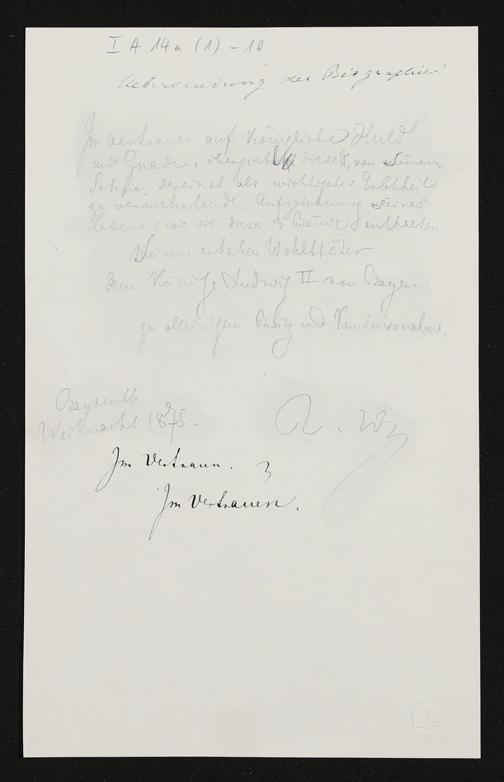 I A 14a (1) - 10
Uebersendung der Biographie
Im Vertrauen auf Königliche Huld
und Gnade, diese, von Seinem
Sohne dereinst als wichtigster Erbtheil
zu verwahrende Aufzeichnung seines
Lebens, wie sie diese 3 Bände enthalten,
Seinem erhabenen Wohlthäter
dem Könige Ludwig II von Bayern.
zu alleinigem Besitz und Kenntnissnahme.
Bayreuth.
Weihnacht 1875.
R. W
Im Vertraun.
Im Vertrauen.